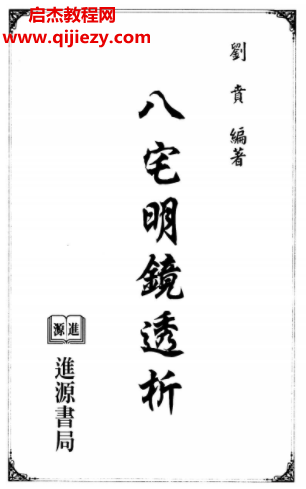 启杰教程网
www.qijiezy.com
劉賁 編著
八宅明鏡透析
源進
進源書局